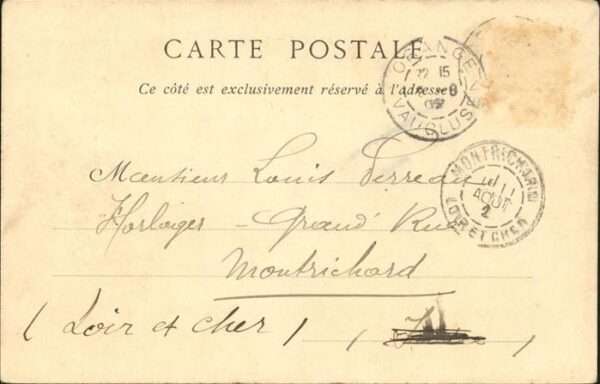 CARTE POSTALE
Ce côté est exclusivement réservé à l'adresse
ORANGE
15
VAUCLUSE
MONTRICHARD
AOUT
LOIR ET CHER
Monsieur Louis Perreau
Horloger - Grand' Rue
Montrichard
(Loir et cher)